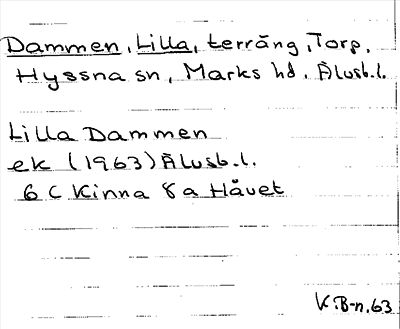 Dammen, Lilla, terräng, Torp,
Hyssna sn, Marks hd, Älvsb.l.
Lilla Dammen
ek (1963) Älvsb.l.
6 C Kinna 8 a Håvet
K.B-n.63